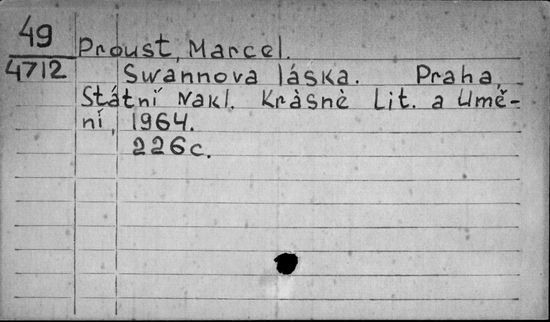 49 Proust, Marcel.
4712 Swannova láska. Praha,
Státní Nakl. Kràsnè Lit. a Umě-
ní, 1964.
226c.